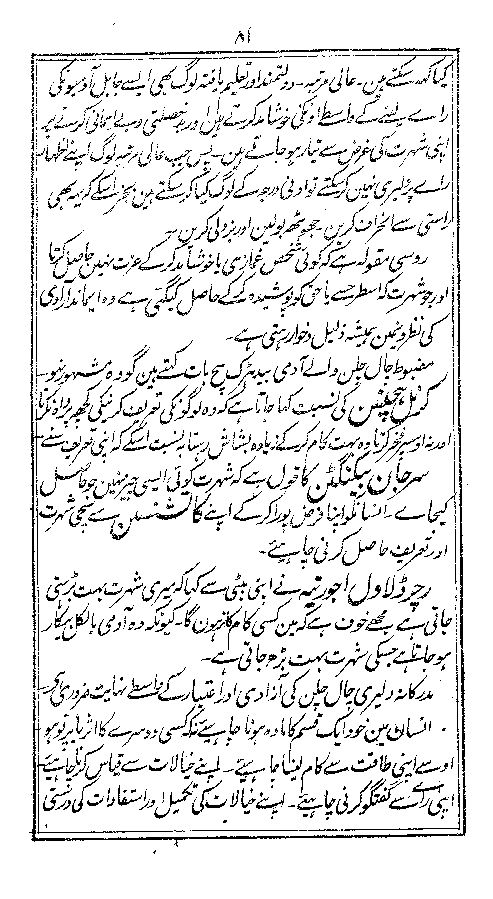 ۸۱
کیا کہہ سکتے ہین۔ عالی مرتبہ۔ دولتمند اور تعلیم یافتہ لوگ بھی ایسے جاہل آدمیونکی
راے لینے کے واسطے اونکی خوشامد کرتے ہین اور بدخصلتی و بے ایمانی کرنے پر
اپنی شہرت کی غرض سے تیار ہو جاتے ہین۔ پس جب عالی مرتبہ لوگ اپنے اظہار
راے پر دلیری نہین کرسکتے تو ادنی درجہ کے لوگ کیا کرسکتے ہین بجز اسکے کہ یہ بھی
راستی سے انحراف کرین۔ جھوٹھ بولین اور بزدلی کرین۔
روسی مقولہ ہے کہ کوئی شخص غمازی یا خوشامد کرکے عزت نہین حاصل کرتا
اور جو شہرت کہ اسطرحسے یا حق کو پوشیدہ کرکے حاصل کیگئی ہے وہ ایماندار آدمی
کی نظرونمین ہمیشہ ذلیل و خوار رہتی ہے۔
مضبوط چال چلن والے آدمی بیدھڑک سچ بات کہتے ہین گو وہ مشہور نہو۔
کرنل ہچنسن کی نسبت کہا جاتا ہے کہ وہ لوگونکی تعریف کرنیکی کچھ پرواہ نکرتا
اور نہ اوسپر فخر کرتا وہ بہت کام کرکے زیادہ بشاش رہتا بہ نسبت اسکے کہ اپنی تعریف سنے
سر جان پیکنگٹن کا قول ہے کہ شہرت کوئی ایسی چیز نہین جو حاصل
کیجاے۔ انسانکو اپنا فرض پورا کرکے اپنے کانشنس سے سچی شہرت
اور تعریف حاصل کرنی چاہیے۔
رچرڈ لاول اجورتھ نے اپنی بیٹی سے کہا کہ میری شہرت بہت بڑھتی
جاتی ہے مجھے خوف ہے کہ مین کسی کام کا نہون گا۔ کیونکہ وہ آدمی بالکل بیکار
ہو جاتا ہے جسکی شہرت بہت بڑھ جاتی ہے۔
مدرکانہ دلیری چال چلن کی آزادی اور اعتبار کے واسطے نہایت ضروری ہے۔
انسان مین خود ایک قسم کا مادہ ہونا چاہیے نہ کہ کسی دوسرے کا اثر یا پرتو ہو
اوسے اپنی طاقت سے کام لینا چاہیے۔ اپنے خیالات سے قیاس کرنا چاہیے
اپنی راے سے گفتگو کرنی چاہیے۔ اپنے خیالات کی تکمیل اور استفادات کی درستی